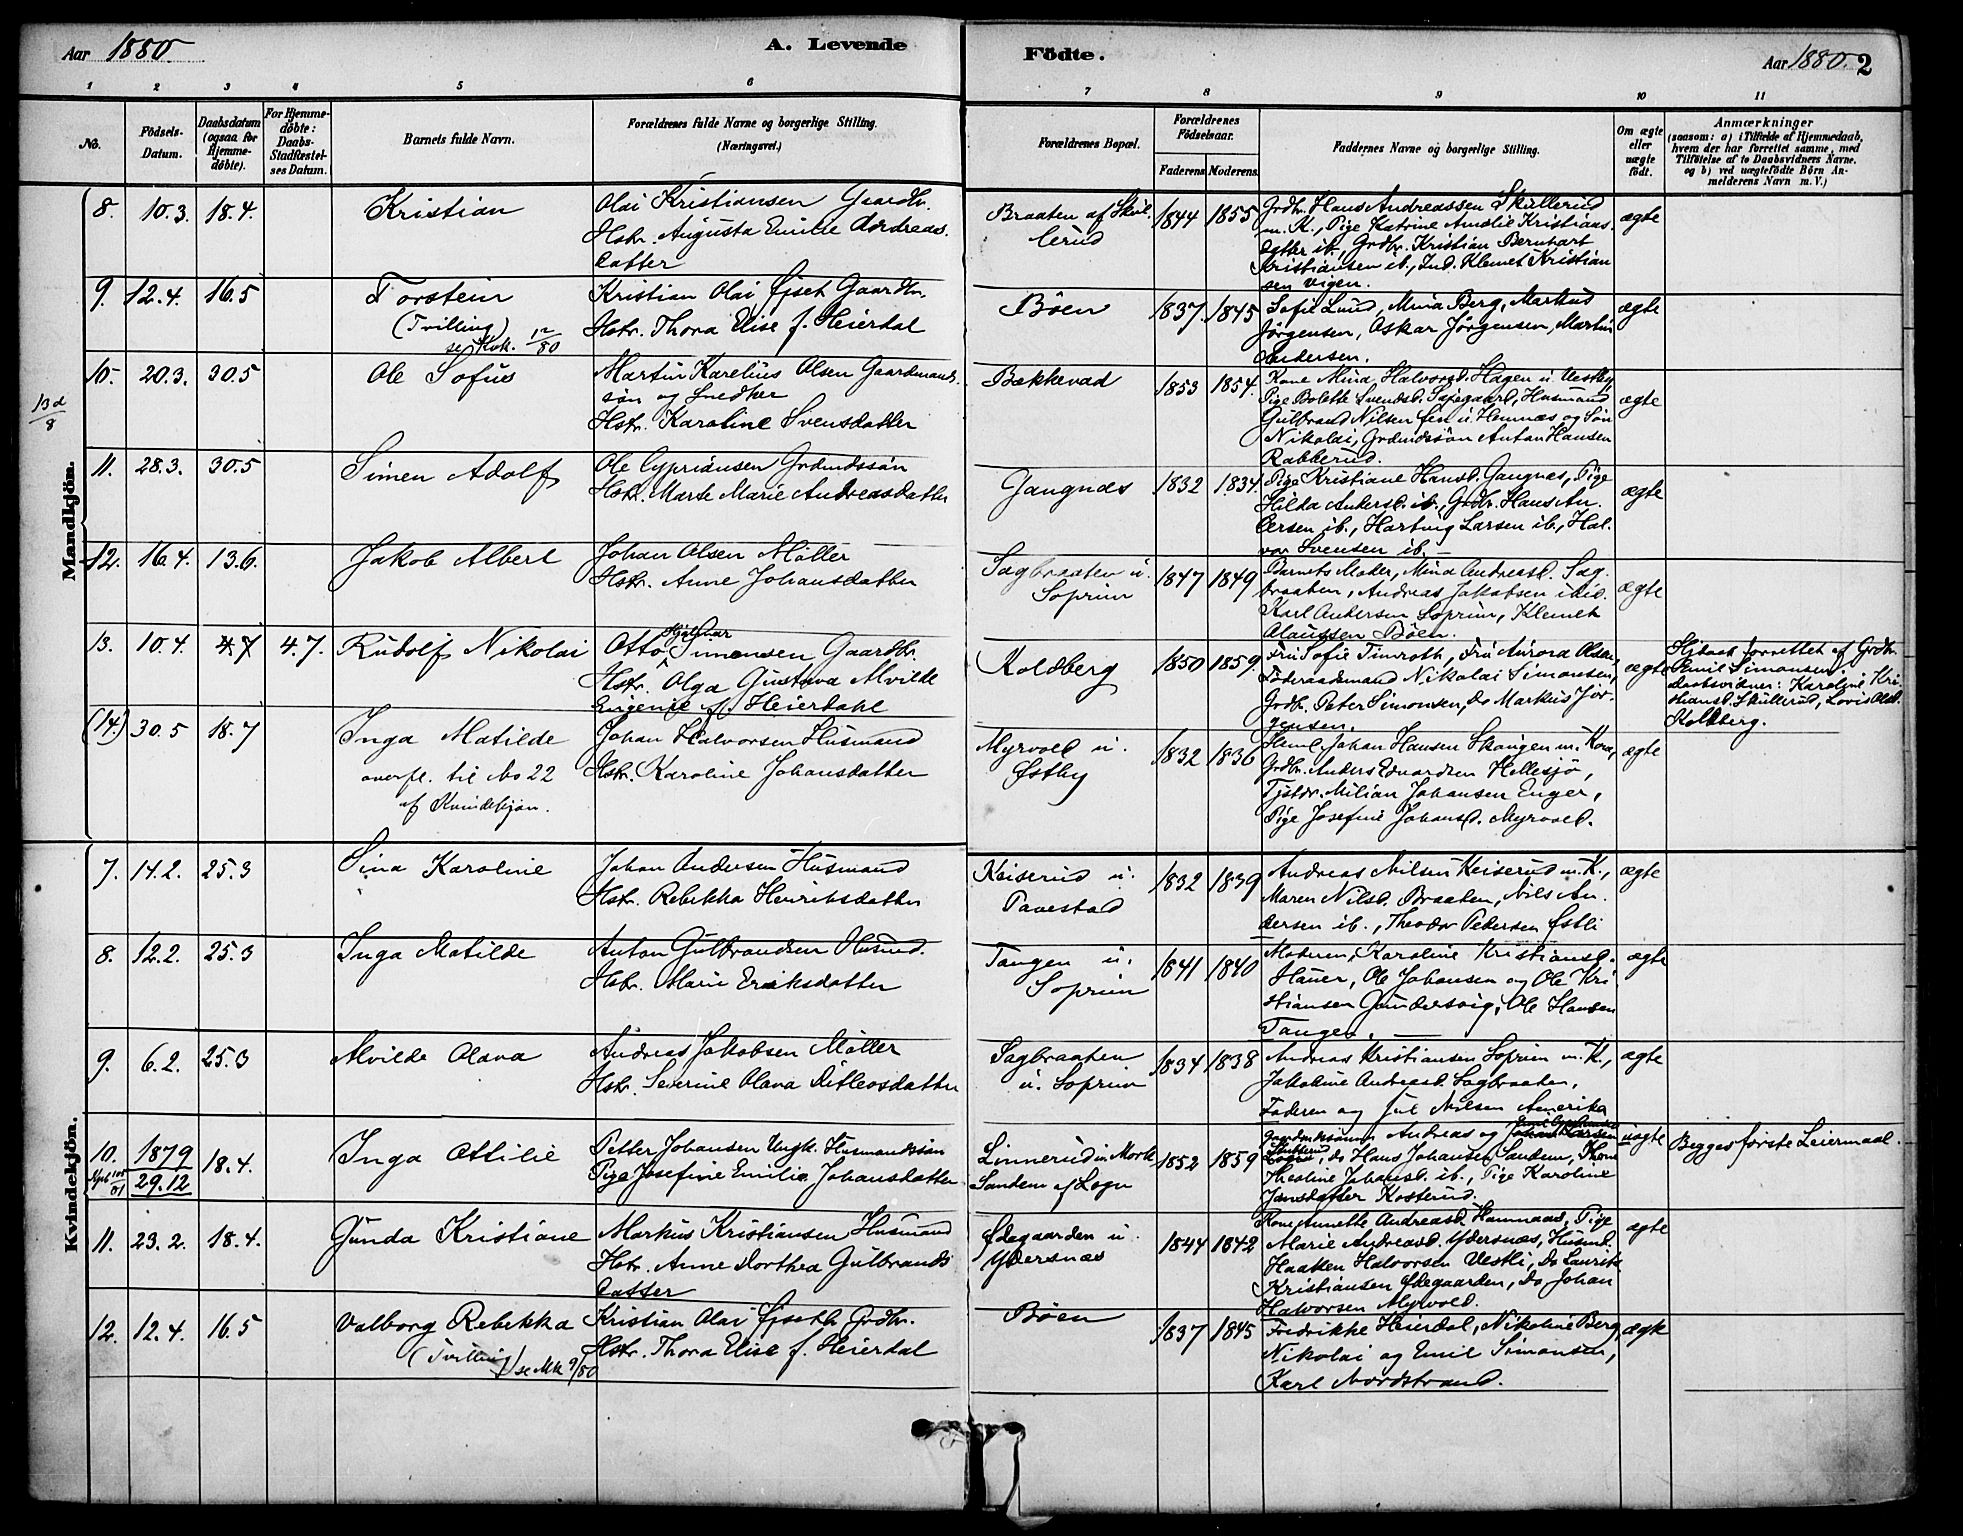 Aar 1880.
A. Levende
Födte.
Aar 1880. 2
1 2 3 4 5 6 7 8 9 10 11
No.
Födsels-Datum.
Daabsdatum (ogsaa for Hjemmedöbte).
For Hjemmedöbte: Daabs-Stadfæstelses Datum.
Barnets fulde Navn.
Forældrenes fulde Navne og borgerlige Stilling. (Næringsvei.)
Forældrenes Bopæl.
Forældrenes Födselsaar.
Faderens Moderens
Faddernes Navne og borgerlige Stilling.
Om ægte eller uægte födt.
Anmærkninger
(saasom: a) i Tilfælde af Hjemmedaab, hvem der har forrettet samme, med Tilföielse af to Daabsvidners Navne, og b) ved uægtefödte Börn Anmelderens Navn m. V.)
Mandkjön.
8. 10.3. 18.4. Kristian
Olai Kristiansen Gaardbr.
Hstr. Augusta Emilie Andreas
datter
Braaten af Skul
lerud
1844 1855
Grdbr. Hans Andreassen Skullerud
m. K., Pige Katrine Amalie Kristians
datter ib., Grdbr. Kristian Bernhart
Kristiansen ib., Ind. Klemet Kristian
sen Vigen.
ægte
9. 12.4. 16.5 Torstein
(Tvilling)
se Kvk. 12/80
Kristian Olai Ejset Gaardbr.
Hstr. Thora Elise f. Heierdal
Böen
1837. 1845
Sofie Lund, Mina Berg, Markus
Jörgensen, Oskar Jörgensen, Martin
Andersen.
ægte
10. 20.3. 30.5 Ole Sofus
Martin Karelius Olsen Gaardmands
sön og Snedker
Hstr. Karoline Svensdatter
Bækkevad
1853 1854.
Kone Mina Halvorsd. Hagen u. Vestby,
Pige Bolette Svendsd. Husmand
Gulbrand Nilsen u. Hemnæs og Sön
Nikolai, Grdmdssön Anton Hansen
Rakkerud.
ægte
11. 28.3. 30.5 Simen Adolf
Ole Cypriansen Grdmdssön
Hstr. Marte Marie Andreasdatter
Gangnæs
1832 1834.
Pige Kristiane Hansd. Gangnæs, Pige
Hilda Andersd. ib., Grdbr. Hans An
dersen ib., Hartvig Larsen ib., Hal
vor Svensen ib.
ægte
12. 16.4. 13.6. Jakob Albert
Johan Olsen Möller
Hstr. Anne Johansdatter
Sagbraaten u.
Soprim
1847 1849
Barnets Moder, Mina Andreasd. Sag
braaten, Andreas Jakobsen ibid.
Karl Andersen Soprim, Klemet
Olaussen Böen.
ægte
13. 10.4. 4.7 4.7. Rudolf Nikolai
Otto Hjalmar Simonsen Gaardbr.
Hstr. Olga Gustava Alvilde
Eugenie f. Heierdahl
Koldberg
1850 1859.
Fru Sofie Timroth, Fru Aurora Olsen,
Föderaadsmand Nikolai Simonsen,
Grdbr. Peter Simonsen, do Markus Jör
gensen.
ægte
Hjdaab forrettet af Grdbr.
Emil Simonsen
Daabsvidner: Karoline Kri
stiansd. Skullerud, Lovise
Kolberg.
(14.) 30.5 18.7 Inga Matilde
overfl. til No 22
af Kvindekjön.
Johan Halvorsen Husmand
Hstr. Karoline Johansdatter
Myrvold u.
Östby
1832 1836
Johan Hansen Skaugen m. Kone,
Grdbr. Anders Edvardsen Hellesjö,
Tjstdr. Milian Johansen Enger,
Pige Josefine Johansd. Myrvold.
ægte
Kvindekjön.
7. 14.2. 25.3 Sina Karoline
Johan Andersen Husmand
Hstr. Rebekka Henriksdatter
Keiserud u.
Tavestad
1832 1839
Andreas Nilsen Keiserud m. K.,
Maren Nilsd. Braaten, Nils An
dersen ib., Theodor Pedersen Estli
ægte
8. 12.2. 25.3 Inga Matilde
Anton Gulbrandsen Husmd.
Hstr. Marie Eriksdatter
Tangen u.
Soprim
1841 1840
Moderen, Karoline Kristiansd.
Hauer, Ole Johansen og Ole Kri
stiansen Gundersvig, Ole Hansen
Tangen.
ægte
9. 6.2. 25.3 Alvilde Olava
Andreas Jakobsen Möller
Hstr. Severine Olava Ditlevsdatter
Sagbraaten
u. Soprim
1834 1838
Andreas Kristiansen Soprim m. K.,
Jakobine Andreasd. Sagbraaten,
Faderen og Jul. Nilsen Amerika
ægte
10. 1879 29.12 18.4. Inga Ottilie
Petter Johansen Ungk. Husmandssön
Pige Josefine Emilie Johansdatter
Linnerud u. Mork
Sandem af Sogn
1852 1859
Gaardbrukssönner Andreas og
do Hans Johansen Sandem, Kone
Theoline Johansd. ib., Pige Karoline
Jansdatter Kosterud.
uægte
Begges förste Leiermaal.
11. 23.2. 18.4. Gunda Kristiane
Markus Kristiansen Husmand
Hstr. Anne Dorthea Gulbrands
datter
Ödegaarden u.
Ydersnæs
1844 1842
Kone Annette Andreasd. Hamnaas, Pige
Marie Andreasd. Ydersnæs, Husmd.
Haaken Halvorsen Vestli, do Laurits
Kristiansen Ödegaarden, do Johan
Halvorsen Myrvold.
ægte
12. 12.4. 16.5 Valborg Rebekka
(Tvilling) se Mk 9/80
Kristian Olai Ejseth Grdbr.
Hstr. Thora Elise f. Heierdal
Böen
1837 1845
Fredrikke Heierdal, Nikoline Berg,
Nikolai og Emil Simonsen,
Karl Nordstrand.
ægte